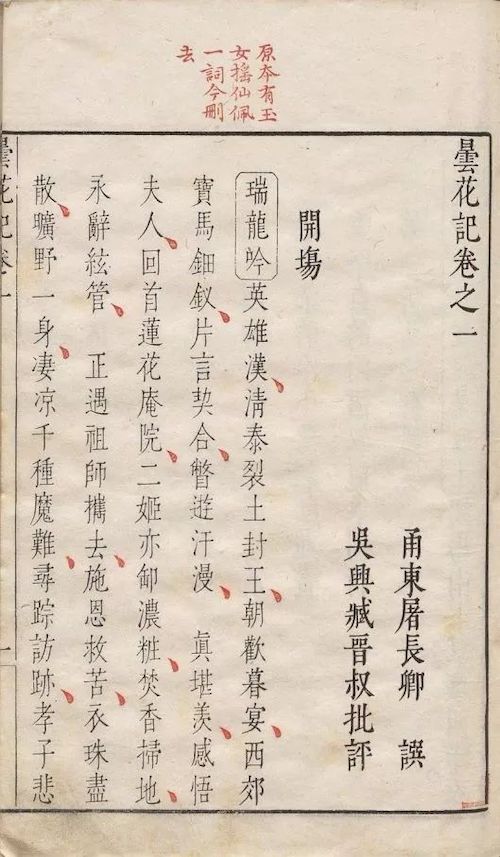 原本有玉
女搖仙佩
一詞今刪
去
曇花記卷之一
甬東屠長卿 譔
吳興臧晉叔批評
開塲
瑞龍吟英雄漢清泰裂土封王朝歡暮宴西郊
寶馬鈿釵片言契合瞥遊汗漫 眞堪羨感悟
夫人回首蓮花庵院二姬亦卸濃粧焚香掃地
永辭絃管 正遇祖師攜去施恩救苦衣珠盡
散曠野一身凄凉千種魔難尋踪訪跡孝子悲
曇花記卷一
一